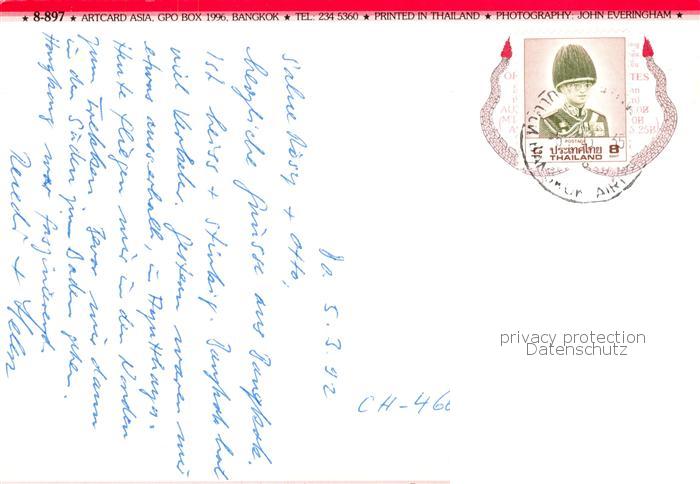 ★ 8-897 ★ ARTCARD ASIA, GPO BOX 1996, BANGKOK ★ TEL: 234 5360 ★ PRINTED IN THAILAND ★ PHOTOGRAPHY: JOHN EVERINGHAM ★
5.3.92
Salue Rösy + Otto,
Herzliche Grüsse aus Bangkok.
Ist heiss + stinkig. Bangkok hat
viel Verkehr. Gestern waren wir
etwas ausserhalb, in Ayutthaya.
Heute fliegen wir in den Norden
zum Trekken. Bevor wir dann
in den Süden zum Baden gehen.
Hongkong war faszinierend.
Ruedi + Helen
POSTAGE
ประเทศไทย 8
THAILAND BAHT
BANGKOK AIR
CH-46
privacy protection
Datenschutz